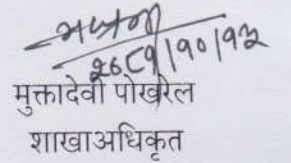 २०८१/१०/१३
मुक्तादेवी पोखरेल
शाखाअधिकृत